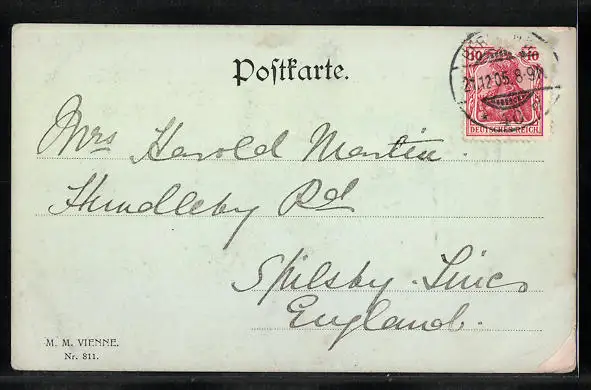 Postkarte.
10 10
21.12.05. 8-9
DEUTSCHES REICH
Mrs Harold Martin.
Hundleby Rd
Spilsby. Lincs
England.
M. M. VIENNE.
Nr. 811.